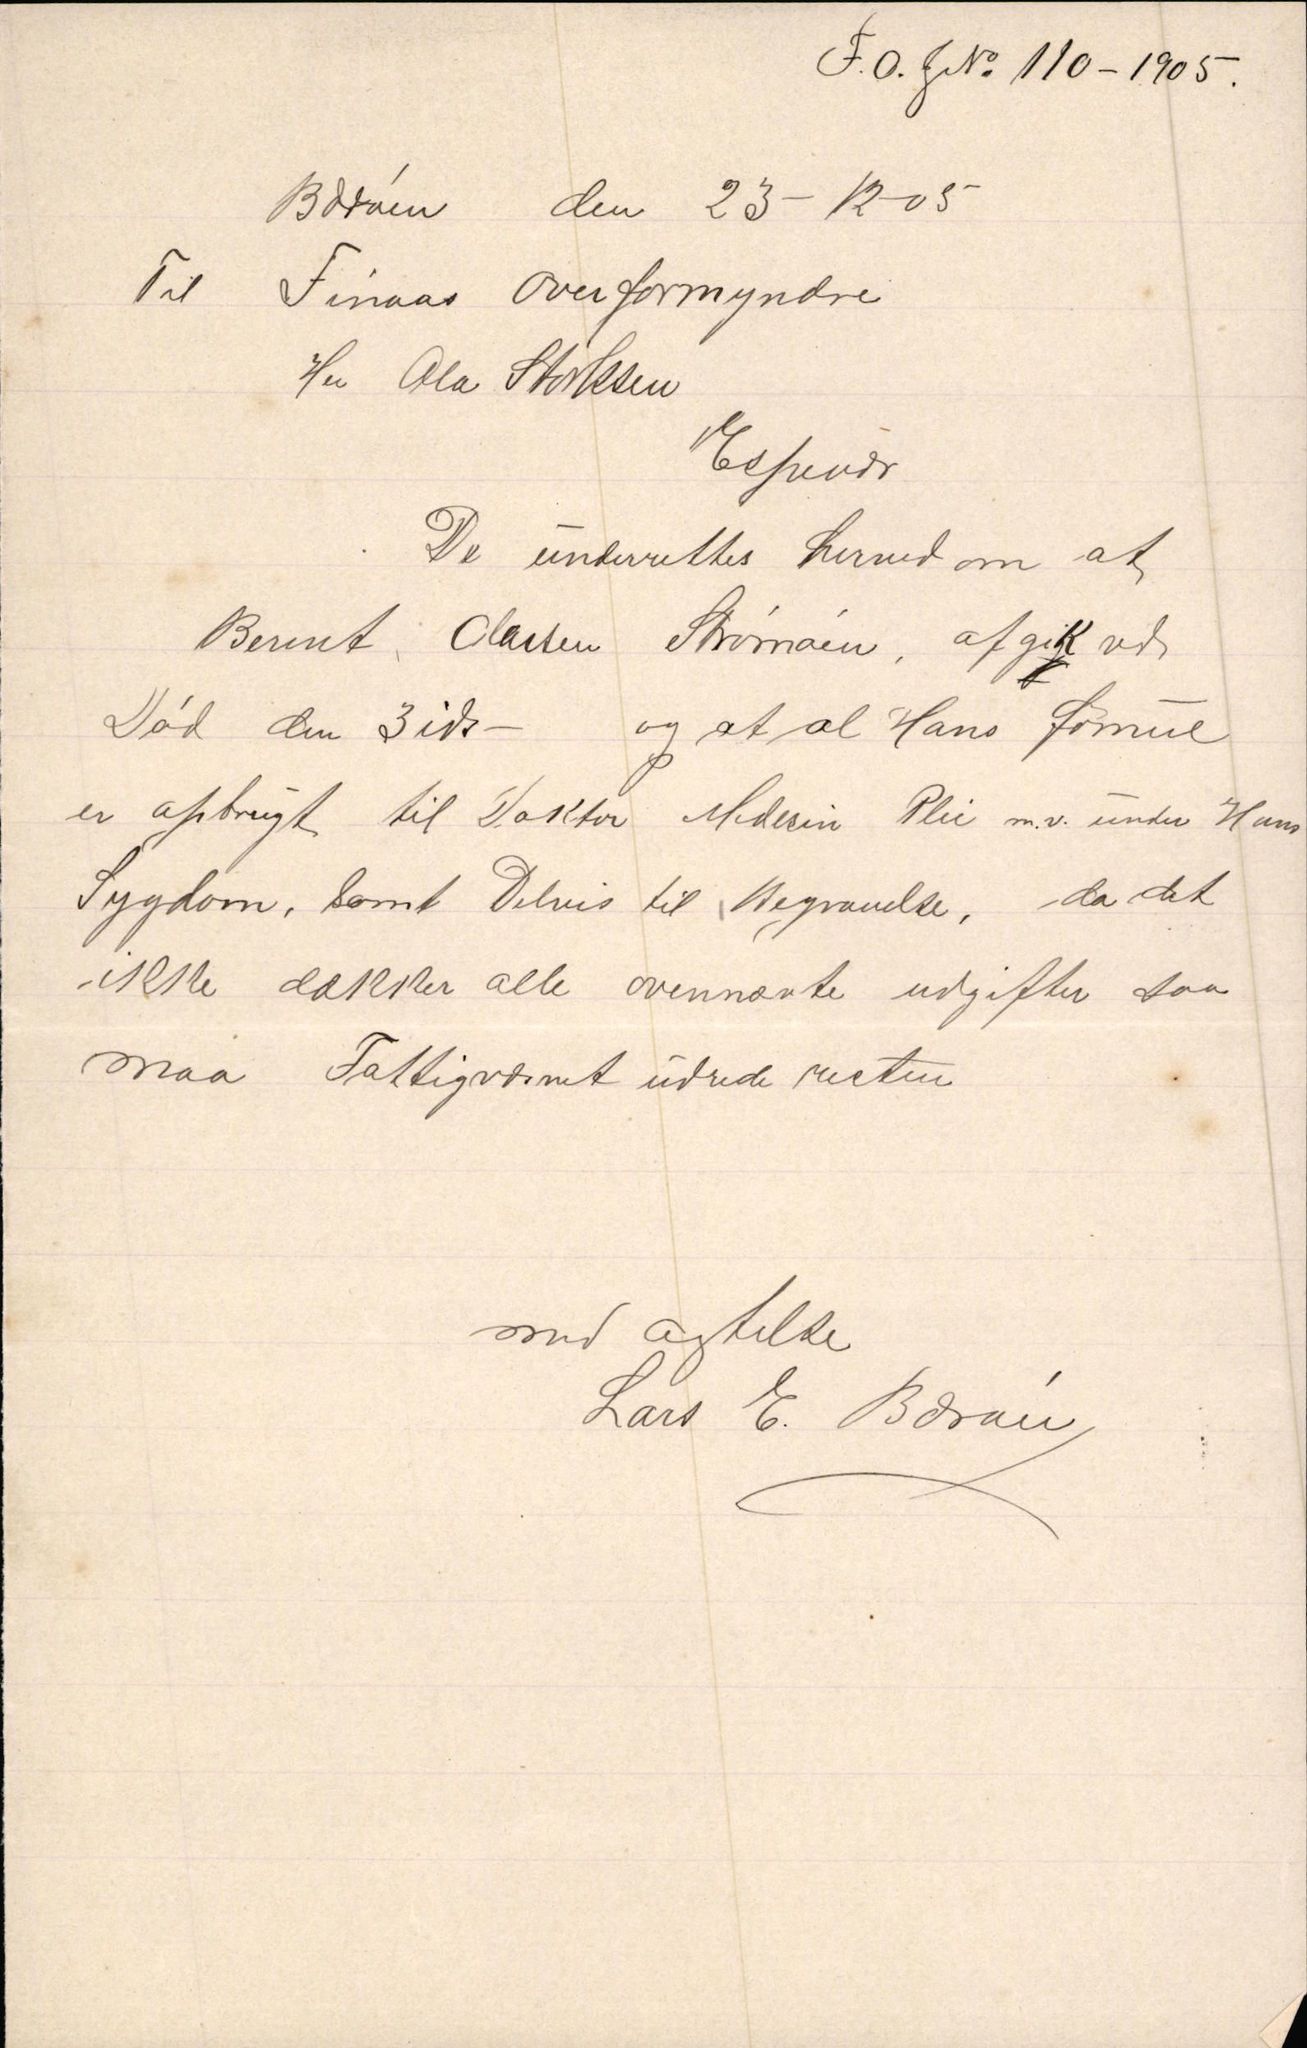 F.O.J.No. 110-1905.
Bærøen den 23-12-05
Til Finaas Overformyndre
Hr Ola Størksen
Espevær
De underrettes herved om at
Berent Olassen Strømøen, afgik ved
Død den 3 ids- og at al Hans formue
er opbrugt til Doktor Medesin Plie m.v. under Hans
Sygdom, samt Delvis til Begravelse, da det
ikke dækker alle ovennævte udgifter saa
maa Fattigvæsnet udrede resten
med agtelse
Lars E. Bærøen